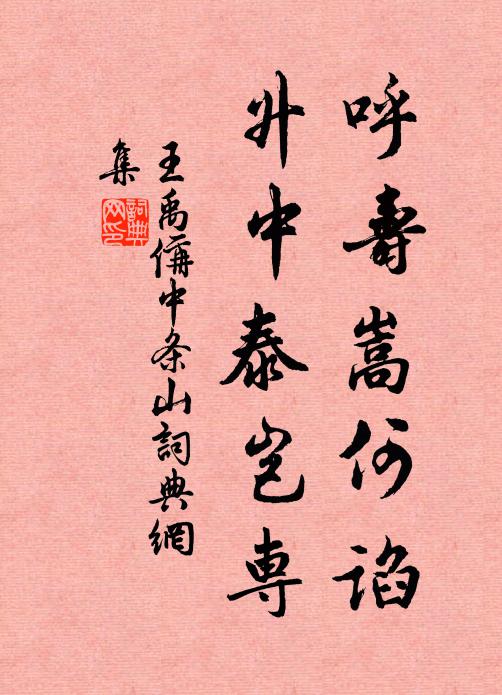 呼壽嵩何諂
升中泰岂専
王禹偁中条山詞典網
集
詞典
网印